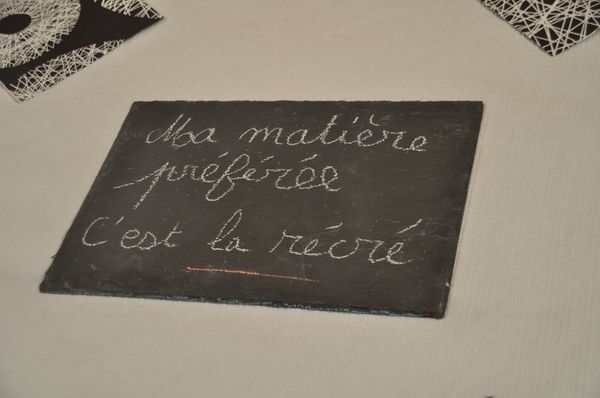 Ma matière
préférée
C'est la récré